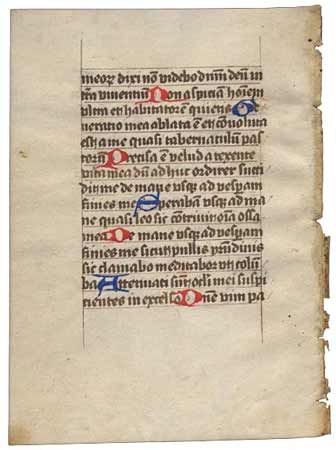 meoꝝ dixi nõ videbo dñm deũ in
trã viventiũ Non aspiciã hoĩem
vltra et habitatorẽ quiens Ge
neratio mea ablata ẽ et cõvoluta
est a me quasi tabernaculum pas
torũ Precisa ẽ velud a texente
vita mea dũm adhuc ordirer succi
dit me de mane vsqꝫ ad vesperam
finies me Sperabã vsqꝫ ad ma
ne quasi leo sic cõtrivit oĩa ossa
mea De mane vsqꝫ ad vesperam
finies me sicut pullis yrũdinis
sic clamabo meditabor vt colũ
ba Attenuati sũt ocli mei suspi
cientes in excelsa Dñe vim pa